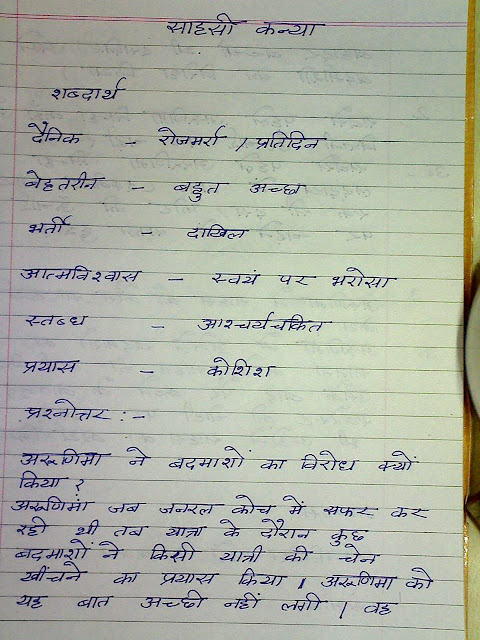 साहसी कन्या
शब्दार्थ
दैनिक - रोजमर्रा / प्रतिदिन
बेहतरीन - बहुत अच्छा
भर्ती - दाखिल
आत्मविश्वास - स्वयं पर भरोसा
स्तब्ध - आश्चर्यचकित
प्रयास - कोशिश
प्रश्नोत्तर :-
अरूणिमा ने बदमाशों का विरोध क्यों
किया ?
अरूणिमा जब जनरल कोच में सफर कर
रही थी तब यात्रा के दौरान कुछ
बदमाशों ने किसी यात्री की चेन
खींचने का प्रयास किया । अरूणिमा को
यह बात अच्छी नहीं लगी । वह